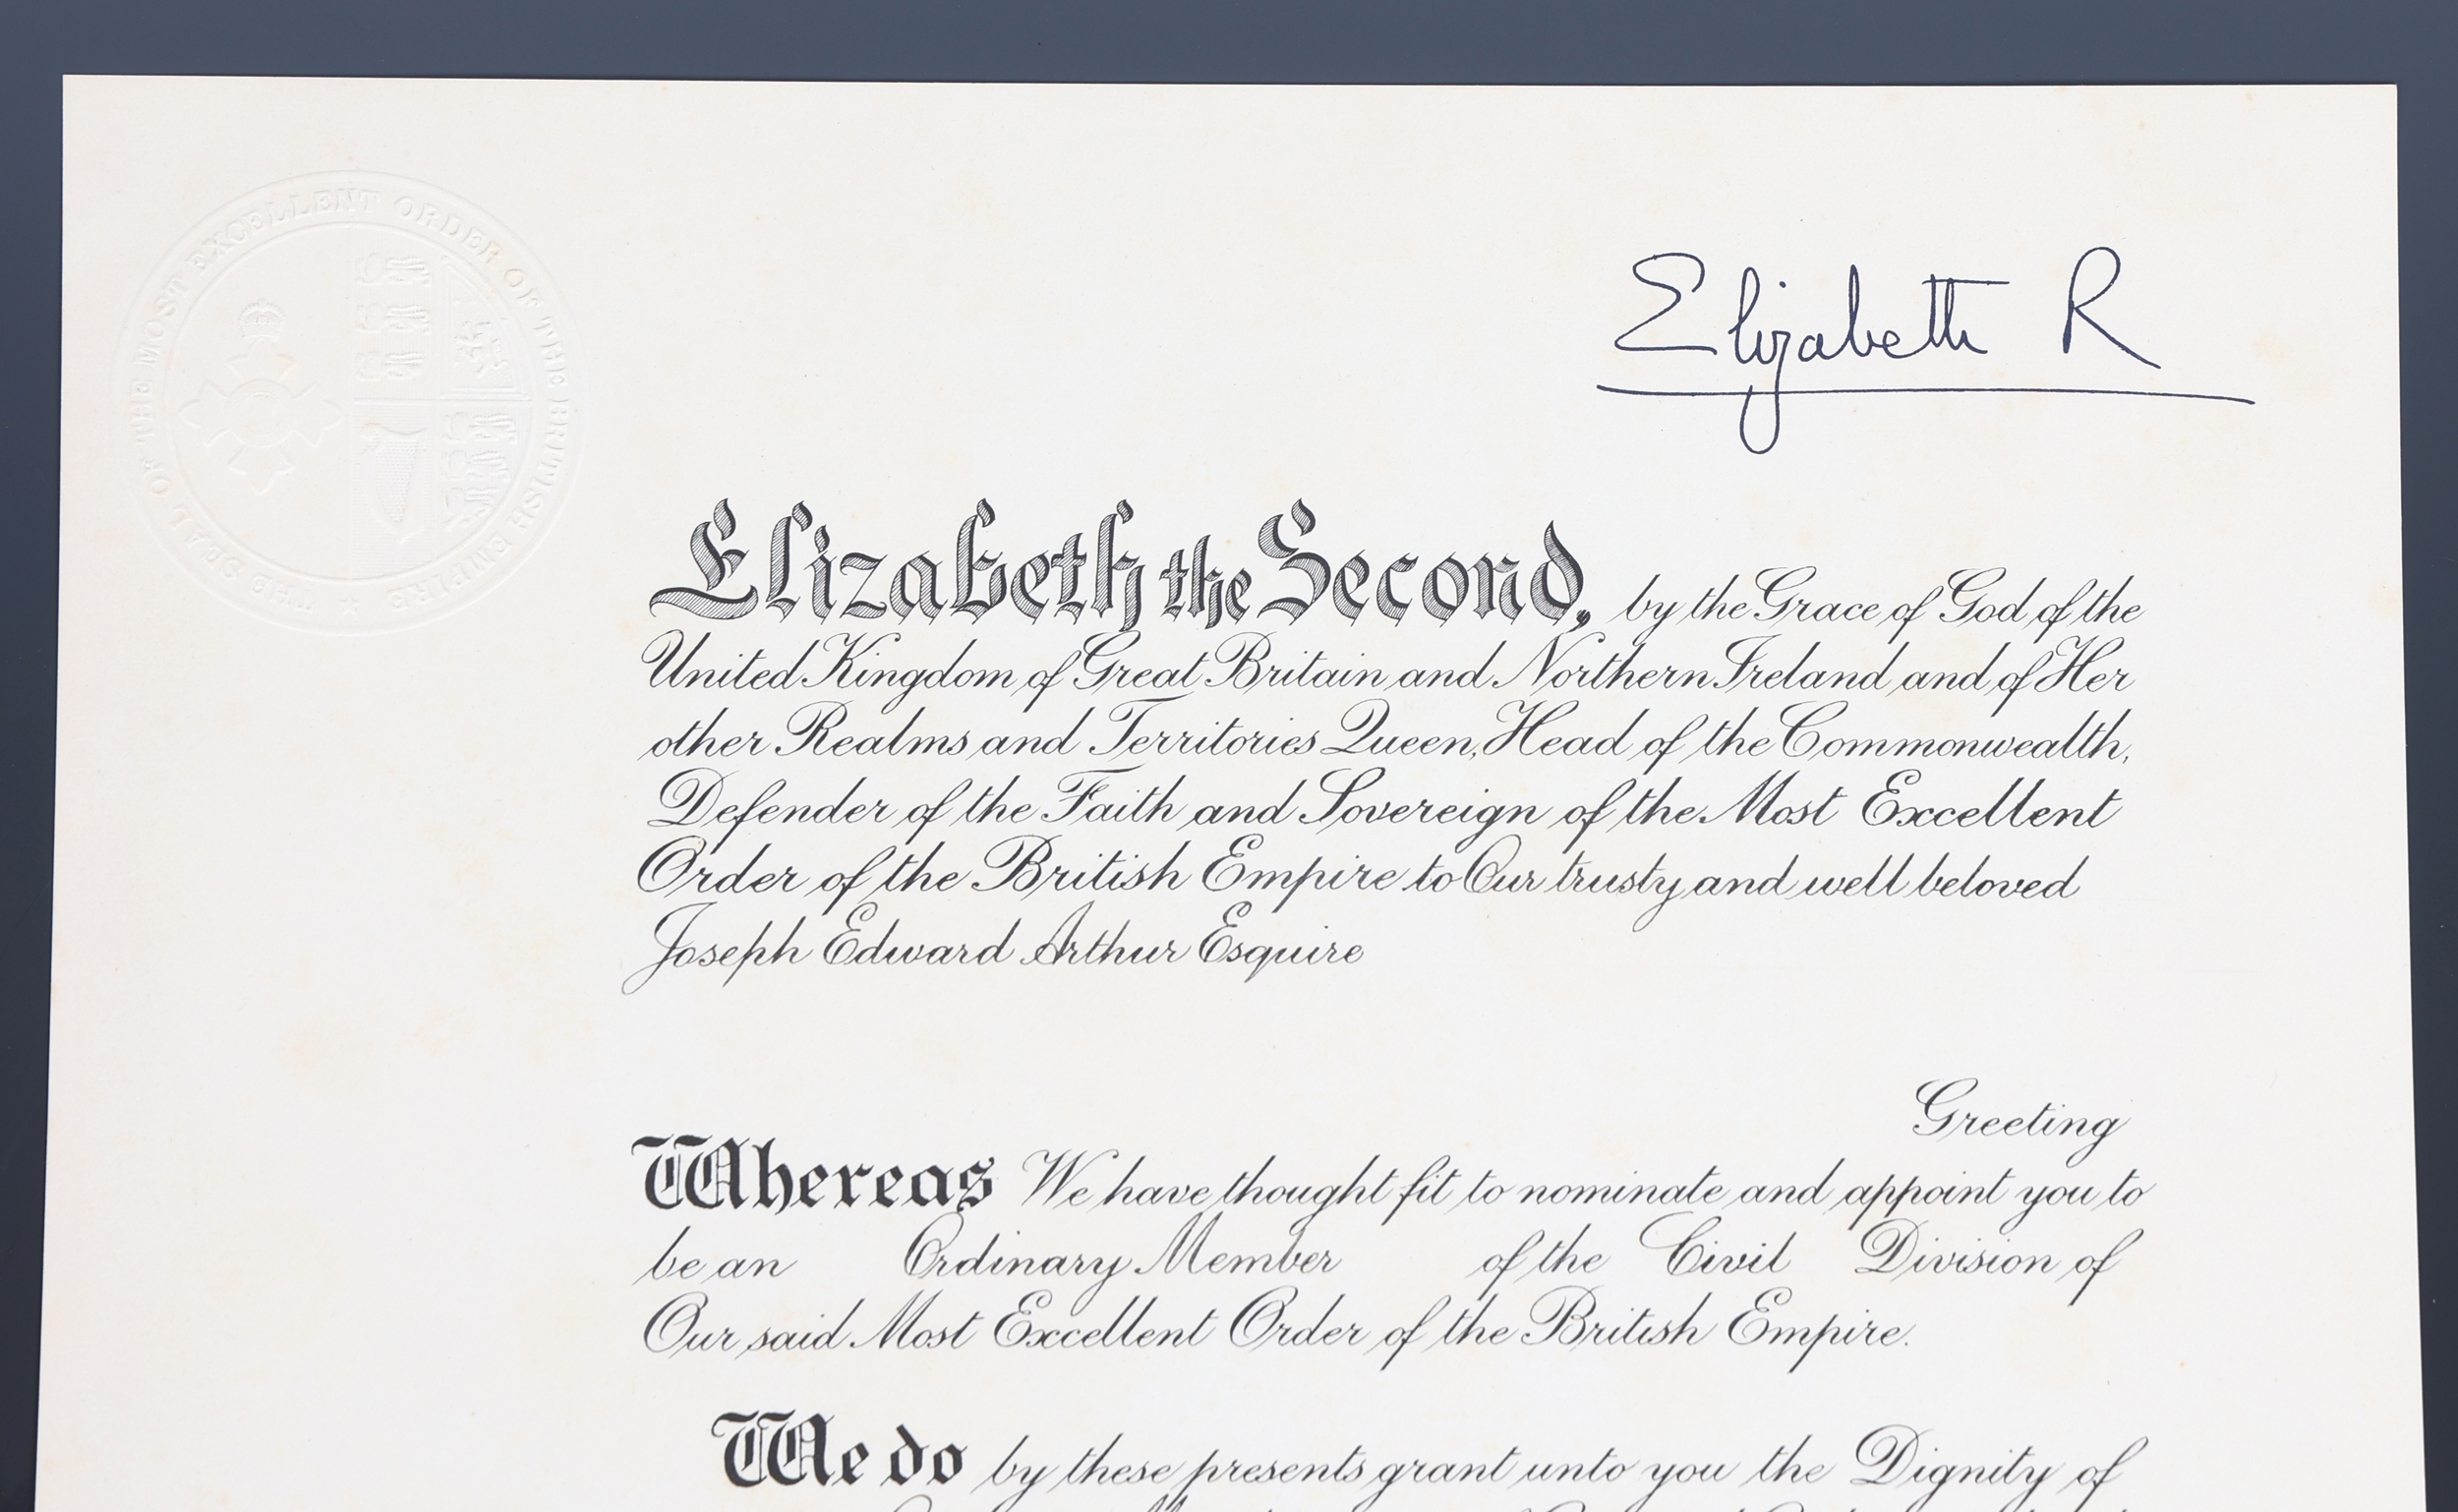 THE SEAL OF THE MOST EXCELLENT ORDER OF THE BRITISH EMPIRE
Elizabeth R
Elizabeth the Second, by the Grace of God of the
United Kingdom of Great Britain and Northern Ireland and of Her
other Realms and Territories Queen, Head of the Commonwealth,
Defender of the Faith and Sovereign of the Most Excellent
Order of the British Empire to Our trusty and well beloved
Joseph Edward Arthur Esquire
Greeting
Whereas We have thought fit to nominate and appoint you to
be an Ordinary Member of the Civil Division of
Our said Most Excellent Order of the British Empire.
We do by these presents grant unto you the Dignity of